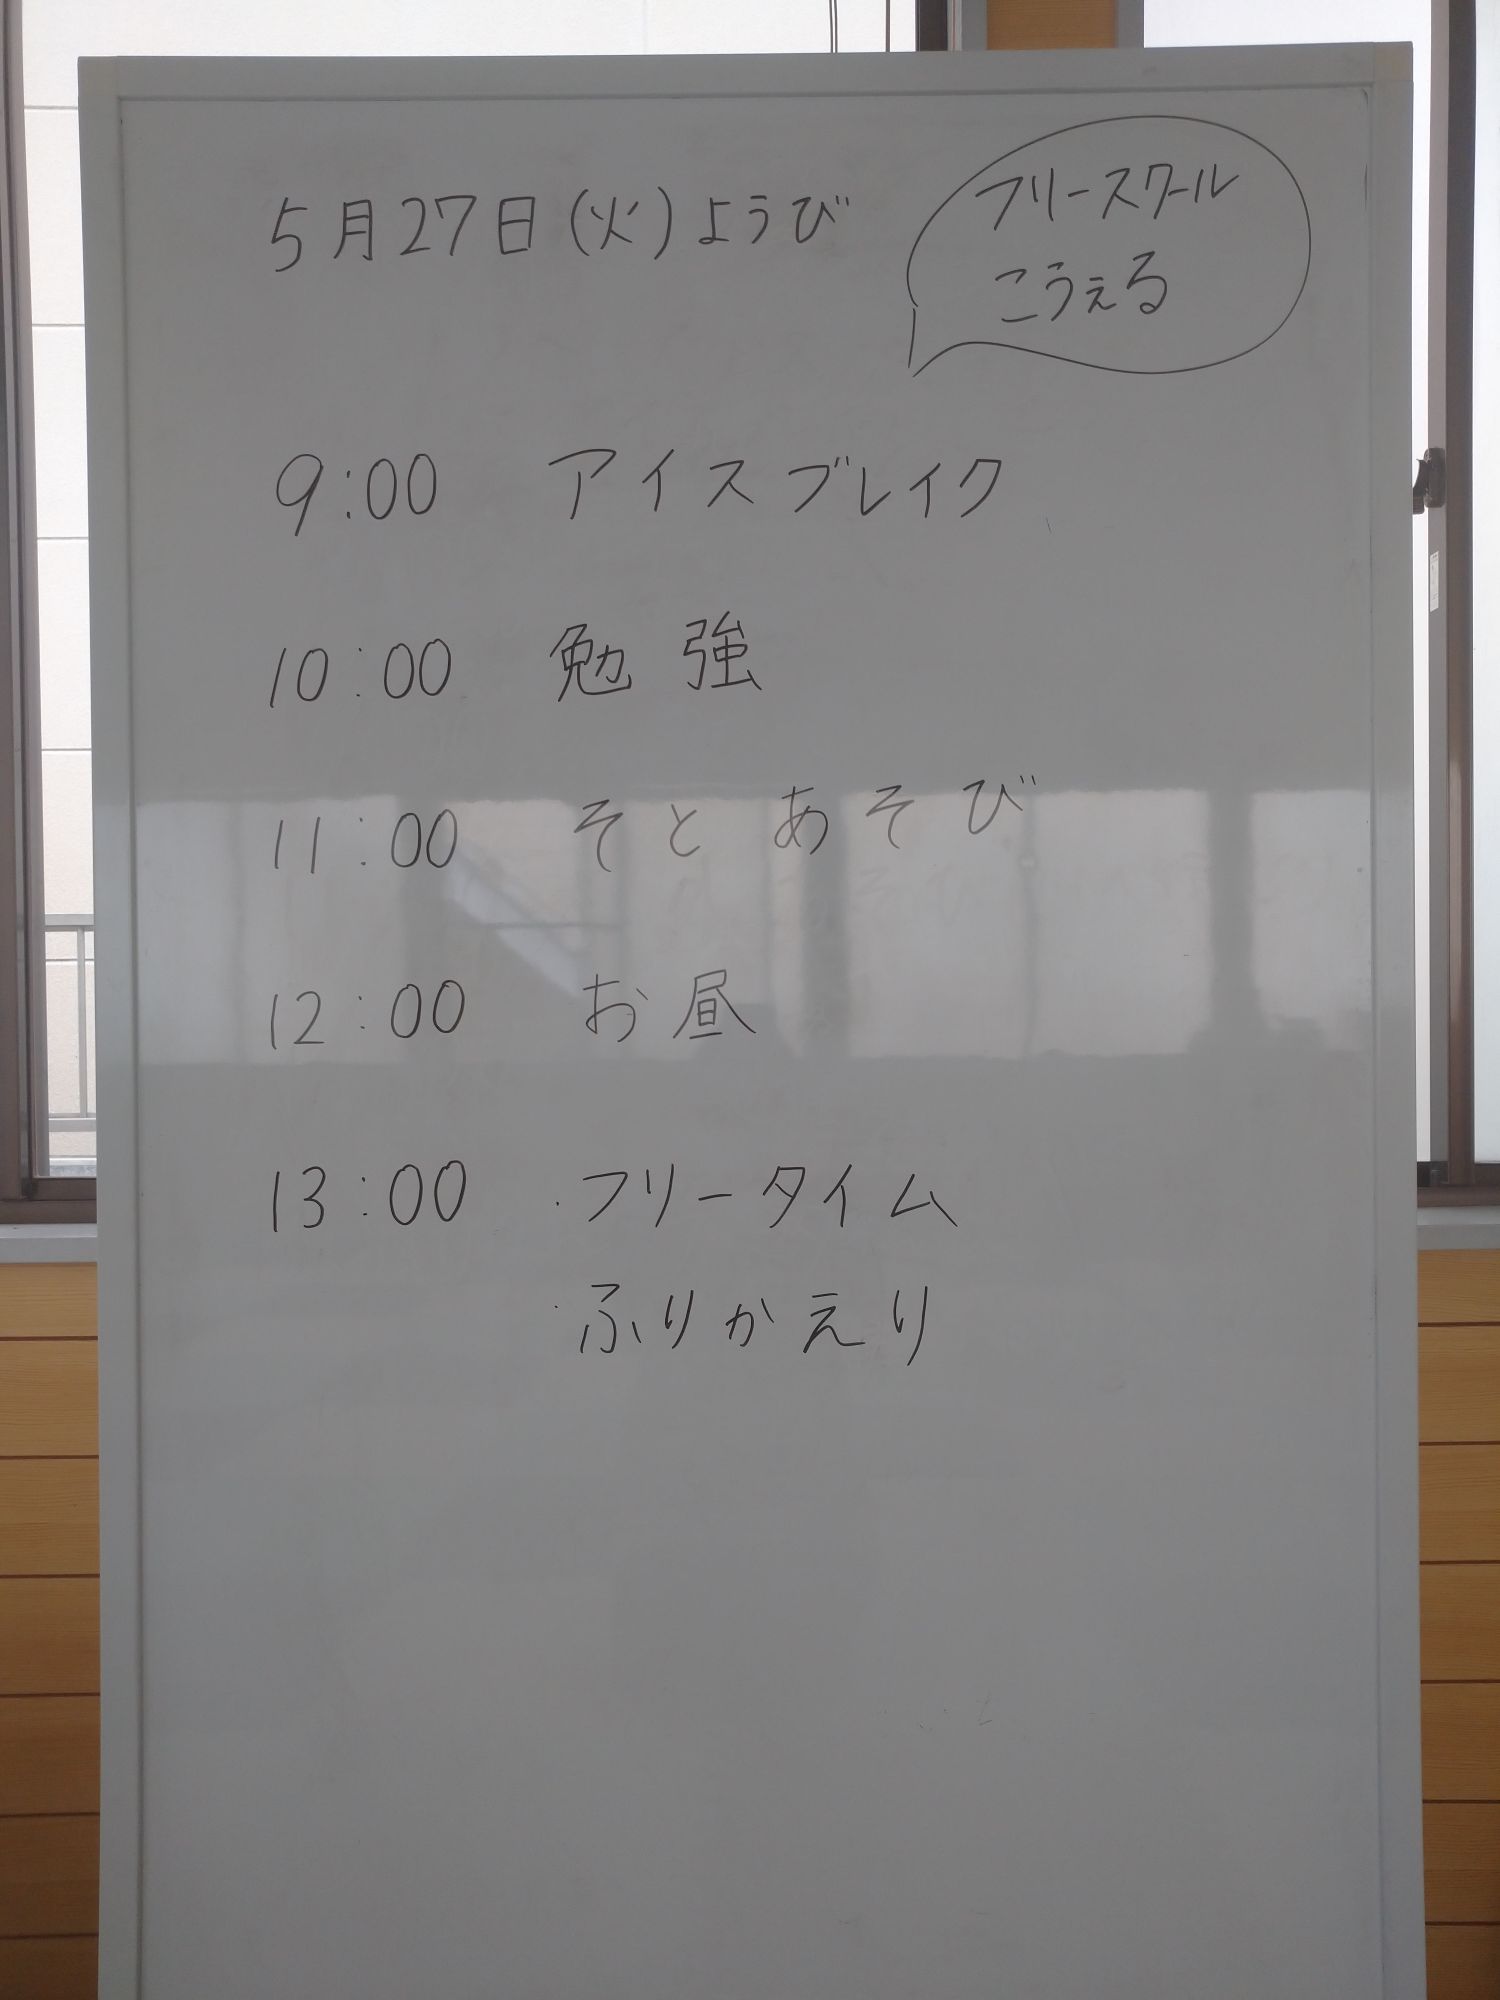 5月27日(火)ようび
フリースクール
こうえる
9:00 アイスブレイク
10:00 勉強
11:00 そとあそび
12:00 お昼
13:00 ・フリータイム
・ふりかえり